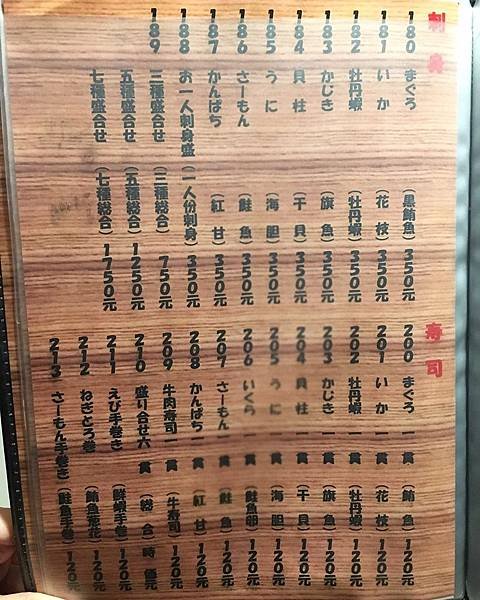 刺身
180 まぐろ (黒鮪魚) 350元
181 いか (花枝) 350元
182 牡丹蝦 (牡丹蝦) 350元
183 かじき (旗魚) 350元
184 貝柱 (干貝) 350元
185 うに (海胆) 350元
186 さーもん (鮭魚) 350元
187 かんぱち (紅甘) 350元
188 お一人刺身盛 (一人份刺身) 350元
189 三種盛合せ (三種総合) 750元
五種盛合せ (五種総合) 1250元
七種盛合せ (七種総合) 1750元
寿司
200 まぐろ 一貫 (鮪魚) 120元
201 いか 一貫 (花枝) 120元
202 牡丹蝦 一貫 (牡丹蝦) 120元
203 かじき 一貫 (旗魚) 120元
204 貝柱 一貫 (干貝) 120元
205 うに 一貫 (海胆) 120元
206 いくら 一貫 (鮭魚卵) 120元
207 さーもん 一貫 (鮭魚) 120元
208 かんぱち 一貫 (紅甘) 120元
209 牛肉寿司 一貫 (牛寿司) 120元
210 盛り合せ六貫 (総合) 時価元
211 えび手巻き (鮮蝦手巻) 120元
212 ねぎとろ巻 (鮪魚葱花) 120元
213 さーもん手巻き (鮭魚手巻) 120元